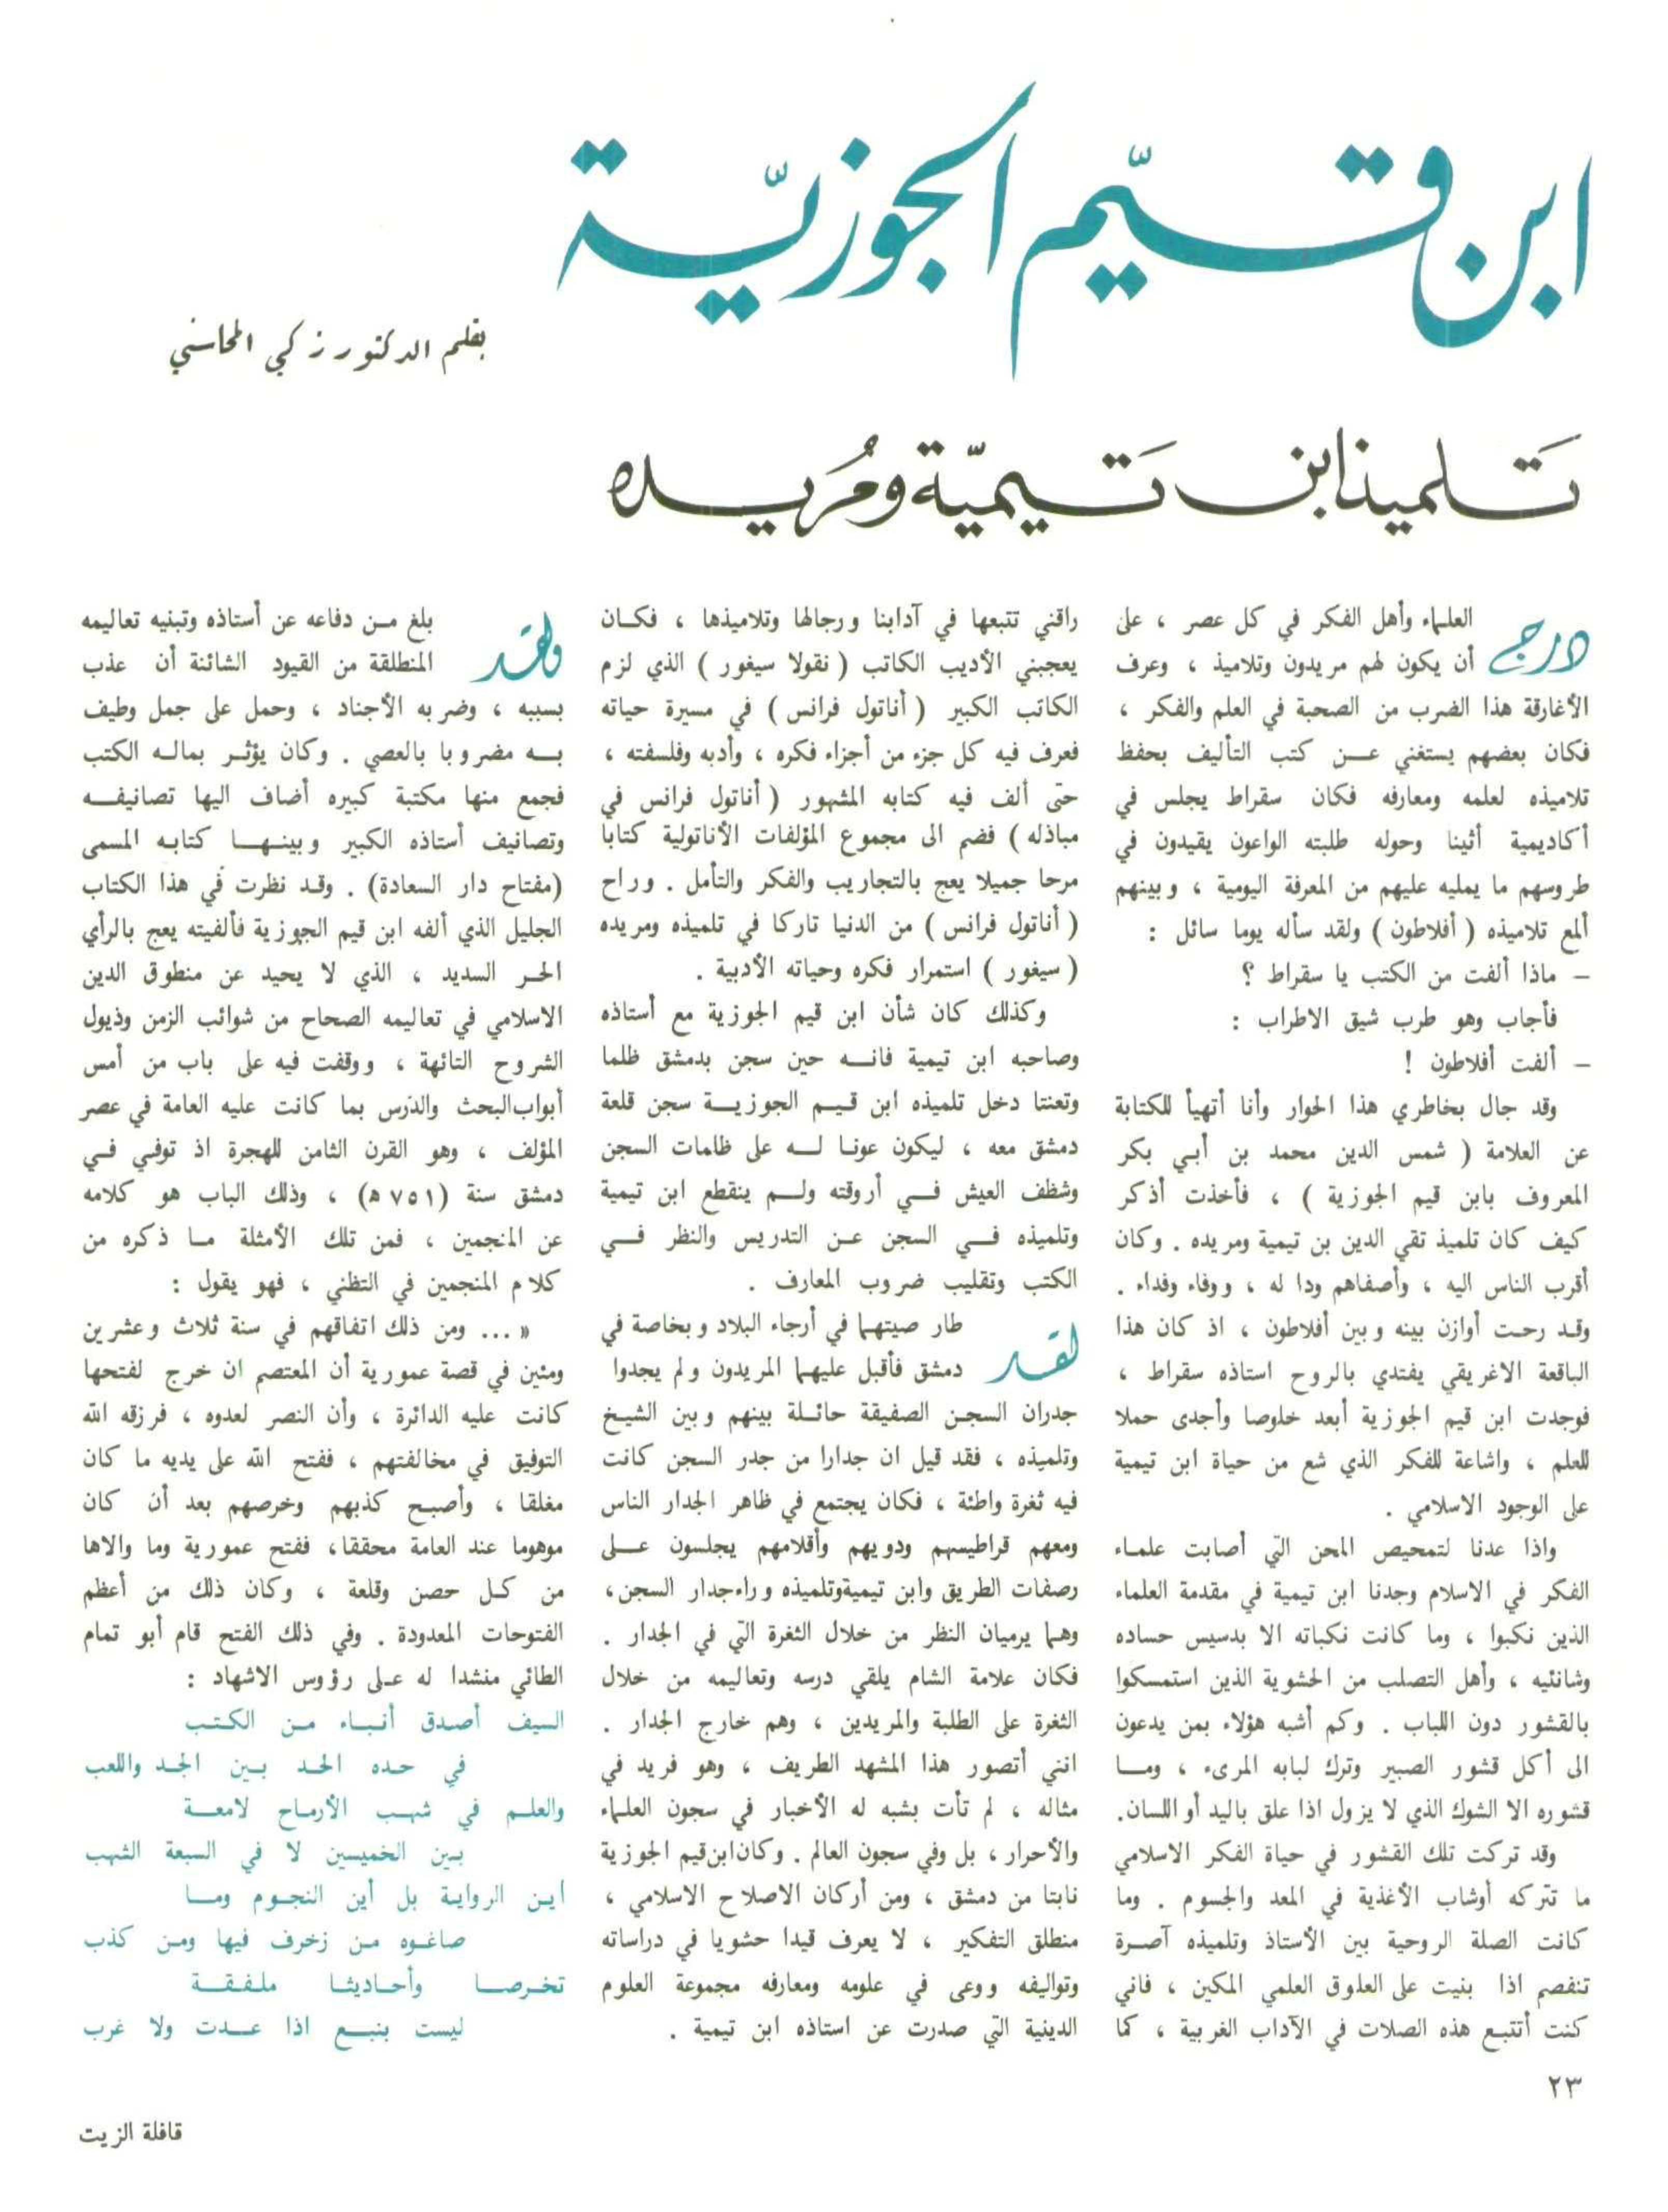 ابن قسيّم الجوزيّة
بقلم الدكتور زكي المحاسني
تَلميذ ابن تَيميّة ومُريده
درج العلماء وأهل الفكر في كل عصر ، على
أن يكون لهم مريدون وتلاميذ ، وعرف
الأغارقة هذا الضرب من الصحبة في العلم والفكر ،
فكان بعضهم يستغني عن كتب التأليف بحفظ
تلاميذه لعلمه ومعارفه فكان سقراط يجلس في
أكاديمية أثينا وحوله طلبته الواعون يقيدون في
طروسهم ما يمليه عليهم من المعرفة اليومية ، وبينهم
ألمع تلاميذه ( أفلاطون ) ولقد سأله يوما سائل :
– ماذا ألفت من الكتب يا سقراط ؟
فأجاب وهو طرب شيق الاطراب :
– ألفت أفلاطون !
وقد جال بخاطري هذا الحوار وأنا أتهيأ للكتابة
عن العلامة ( شمس الدين محمد بن أبي بكر
المعروف بابن قيم الجوزية ) ، فأخذت أذكر
كيف كان تلميذ تقي الدين بن تيمية ومريده . وكان
أقرب الناس اليه ، وأصفاهم ودا له ، ووفاء وفداء .
وقد رحت أوازن بينه وبين أفلاطون ، اذ كان هذا
الباقعة الاغريقي يفتدي بالروح استاذه سقراط ،
فوجدت ابن قيم الجوزية أبعد خلوصا وأجدى حملا
للعلم ، واشاعة للفكر الذي شع من حياة ابن تيمية
على الوجود الاسلامي .
واذا عدنا لتمحيص المحن التي أصابت علماء
الفكر في الاسلام وجدنا ابن تيمية في مقدمة العلماء
الذين نكبوا ، وما كانت نكباته الا بدسيس حساده
وشانئيه ، وأهل التصلب من الحشوية الذين استمسكوا
بالقشور دون اللباب . وكم أشبه هؤلاء بمن يدعون
الى أكل قشور الصبير وترك لبابه المريء ، وما
قشوره الا الشوك الذي لا يزول اذا علق باليد أو اللسان.
وقد تركت تلك القشور في حياة الفكر الاسلامي
ما تتركه أوشاب الأغذية في المعد والجسوم . وما
كانت الصلة الروحية بين الأستاذ وتلميذه آصرة
تنفصم اذا بنيت على العلوق العلمي المكين ، فاني
كنت أتتبع هذه الصلات في الآداب الغربية ، كما
راقني تتبعها في آدابنا ورجالها وتلاميذها ، فكان
يعجبني الأديب الكاتب ( نقولا سيغور ) الذي لزم
الكاتب الكبير ( أناتول فرانس ) في مسيرة حياته
فعرف فيه كل جزء من أجزاء فكره ، وأدبه وفلسفته ،
حتى ألف فيه كتابه المشهور ( أناتول فرانس في
مباذله ) فضم الى مجموع المؤلفات الأناتولية كتابا
مرحا جميلا يعج بالتجاريب والفكر والتأمل . وراح
( أناتول فرانس ) من الدنيا تاركا في تلميذه ومريده
( سيغور ) استمرار فكره وحياته الأدبية .
وكذلك كان شأن ابن قيم الجوزية مع أستاذه
وصاحبه ابن تيمية فانه حين سجن بدمشق ظلما
وتعنتا دخل تلميذه ابن قيم الجوزية سجن قلعة
دمشق معه ، ليكون عونا له على ظلمات السجن
وشظف العيش في أروقته ولم ينقطع ابن تيمية
وتلميذه في السجن عن التدريس والنظر في
الكتب وتقليب ضروب المعارف .
لقد طار صيتهما في أرجاء البلاد وبخاصة في
دمشق فأقبل عليهما المريدون ولم يجدوا
جدران السجن الصفيقة حائلة بينهم وبين الشيخ
وتلميذه ، فقد قيل ان جدارا من جدر السجن كانت
فيه ثغرة واطئة ، فكان يجتمع في ظاهر الجدار الناس
ومعهم قراطيسهم ودويهم وأقلامهم يجلسون على
رصفات الطريق وابن تيمية وتلميذه وراء جدار السجن،
وهما يرميان النظر من خلال الثغرة التي في الجدار .
فكان علامة الشام يلقي درسه وتعاليمه من خلال
الثغرة على الطلبة والمريدين ، وهم خارج الجدار .
انني أتصور هذا المشهد الطريف ، وهو فريد في
مثاله ، لم تأت بشبه له الأخبار في سجون العلماء
والأحرار ، بل وفي سجون العالم . وكان ابن قيم الجوزية
نابتا من دمشق ، ومن أركان الاصلاح الاسلامي ،
منطلق التفكير ، لا يعرف قيدا حشويا في دراساته
وتواليفه ووعى في علومه ومعارفه مجموعة العلوم
الدينية التي صدرت عن استاذه ابن تيمية .
ولقد بلغ من دفاعه عن أستاذه وتبنيه تعاليمه
المنطلقة من القيود الشائنة أن عذب
بسببه ، وضربه الأجناد ، وحمل على جمل وطيف
به مضروبا بالعصي . وكان يؤثر بماله الكتب
فجمع منها مكتبة كبيره أضاف اليها تصانيفه
وتصانيف أستاذه الكبير وبينها كتابه المسمى
(مفتاح دار السعادة) . وقد نظرت في هذا الكتاب
الجليل الذي ألفه ابن قيم الجوزية فألفيته يعج بالرأي
الحر السديد ، الذي لا يحيد عن منطوق الدين
الاسلامي في تعاليمه الصحاح من شوائب الزمن وذيول
الشروح التائهة ، ووقفت فيه على باب من أمس
أبواب البحث والدرس بما كانت عليه العامة في عصر
المؤلف ، وهو القرن الثامن للهجرة اذ توفي في
دمشق سنة (٧٥١ ه) ، وذلك الباب هو كلامه
عن المنجمين ، فمن تلك الأمثلة ما ذكره من
كلام المنجمين في التظني ، فهو يقول :
« ... ومن ذلك اتفاقهم في سنة ثلاث وعشرين
ومئين في قصة عمورية أن المعتصم ان خرج لفتحها
كانت عليه الدائرة ، وأن النصر لعدوه ، فرزقه الله
التوفيق في مخالفتهم ، ففتح الله على يديه ما كان
مغلقا ، وأصبح كذبهم وخرصهم بعد أن كان
موهوما عند العامة محققا، ففتح عمورية وما والاها
من كل حصن وقلعة ، وكان ذلك من أعظم
الفتوحات المعدودة . وفي ذلك الفتح قام أبو تمام
الطائي منشدا له على رؤوس الاشهاد :
السيف أصدق أنباء من الكتب
في حده الحد بين الجد واللعب
والعلم في شهب الأرماح لامعة
بين الخميسين لا في السبعة الشهب
أين الرواية بل أين النجوم وما
صاغوه من زخرف فيها ومن كذب
تخرصا وأحاديثا ملفقة
ليست بنبع اذا عدت ولا غرب
٢٣
قافلة الزيت